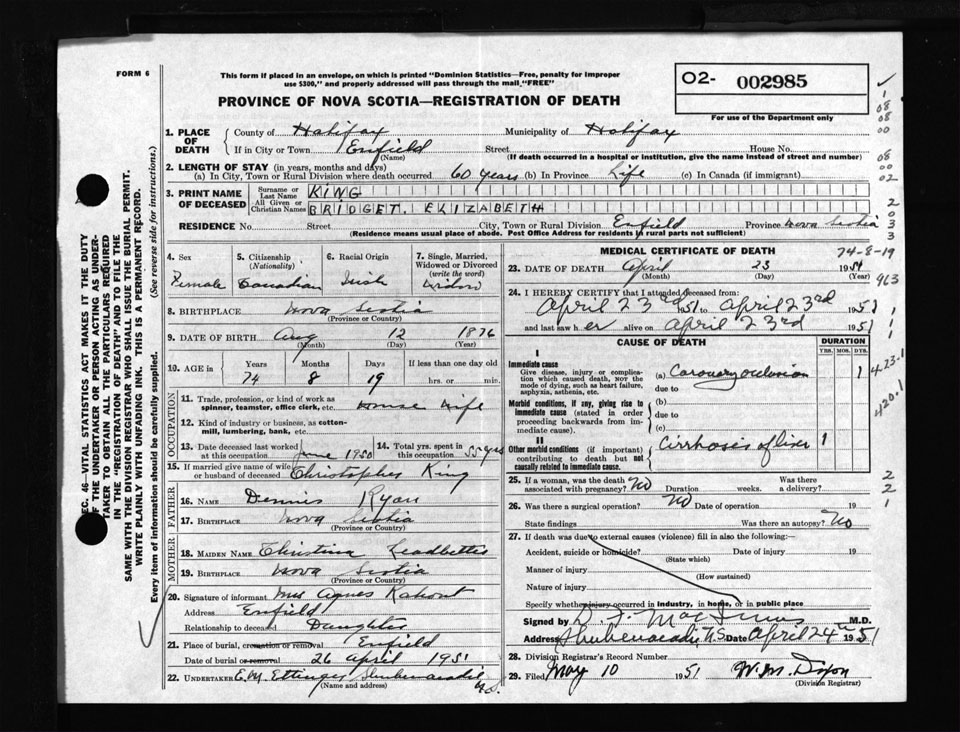 FORM 6
This form if placed in an envelope, on which is printed "Dominion Statistics—Free, penalty for improper
use $300," and properly addressed will pass through the mail "FREE"
O2- 002985
For use of the Department only
PROVINCE OF NOVA SCOTIA—REGISTRATION OF DEATH
1. PLACE OF DEATH
County of Halifax Municipality of Halifax
If in City or Town Enfield Street House No.
(Name) (If death occurred in a hospital or institution, give the name instead of street and number)
2. LENGTH OF STAY (in years, months and days)
(a) In City, Town or Rural Division where death occurred 60 years (b) In Province Life (c) In Canada (if immigrant)
3. PRINT NAME OF DECEASED
Surname or Last Name KING
All Given or Christian Names BRIDGET. ELIZABETH
RESIDENCE No. Street City, Town or Rural Division Enfield Province Nova Scotia
(Residence means usual place of abode. Post Office Address for residents in rural parts not sufficient)
4. Sex Female
5. Citizenship (Nationality) Canadian
6. Racial Origin Irish
7. Single, Married, Widowed or Divorced (write the word) Widow
8. BIRTHPLACE Nova Scotia
(Province or Country)
9. DATE OF BIRTH Aug 12 1876
(Month) (Day) (Year)
10. AGE in Years Months Days If less than one day old
74 8 19 hrs. or min.
OCCUPATION
11. Trade, profession, or kind of work as spinner, teamster, office clerk, etc. House Wife
12. Kind of industry or business, as cotton-mill, lumbering, bank, etc.
13. Date deceased last worked at this occupation June 1950
14. Total yrs. spent in this occupation 55 yrs
15. If married give name of wife or husband of deceased Christopher King
FATHER
16. NAME Dennis Ryan
17. BIRTHPLACE Nova Scotia
(Province or Country)
MOTHER
18. MAIDEN NAME Christina Leadbetter
19. BIRTHPLACE Nova Scotia
(Province or Country)
20. Signature of informant Mrs Agnes
Address Enfield
Relationship to deceased Daughter
21. Place of burial, cremation or removal Enfield
Date of burial or removal 26 April 1951
22. UNDERTAKER E.M. Ettinger Shubenacadie
(Name and address) N.S.
MEDICAL CERTIFICATE OF DEATH 74-8-19
23. DATE OF DEATH April 23 1951
(Month) (Day)
24. I HEREBY CERTIFY that I attended deceased from:
April 23rd 1951 to April 23rd 1951
and last saw her alive on April 23rd 1951
CAUSE OF DEATH DURATION
YRS. MOS. DYS.
I
Immediate cause
Give disease, injury or complication which caused death, NOT the mode of dying, such as heart failure, asphyxia, asthenia, etc.
(a) Coronary occlusion 1
due to
Morbid conditions, if any, giving rise to immediate cause (stated in order proceeding backwards from immediate cause).
(b)
due to
(c)
II
Other morbid conditions (if important) contributing to death but not causally related to immediate cause.
Cirrhosis of liver 1
420.1
25. If a woman, was the death associated with pregnancy? No Duration weeks. Was there a delivery?
26. Was there a surgical operation? No Date of operation 19
State findings Was there an autopsy? No
27. If death was due to external causes (violence) fill in also the following:
Accident, suicide or homicide? Date of injury 19
(State which)
Manner of injury
(How sustained)
Nature of injury
Specify whether injury occurred in industry, in home, or in public place
Signed by M.D.
Address Shubenacadie, N.S. Date April 24th 1951
28. Division Registrar's Record Number
29. Filed May 10 1951 W.M. Dixon
(Division Registrar)
SEC. 46—VITAL STATISTICS ACT MAKES IT THE DUTY
OF THE UNDERTAKER OR PERSON ACTING AS UNDER-
TAKER TO OBTAIN ALL THE PARTICULARS REQUIRED
IN THE "REGISTRATION OF DEATH" AND TO FILE THE
SAME WITH THE DIVISION REGISTRAR WHO SHALL ISSUE THE BURIAL PERMIT.
WRITE PLAINLY WITH UNFADING INK. THIS IS A PERMANENT RECORD.
Every item of information should be carefully supplied. (See reverse side for instructions.)